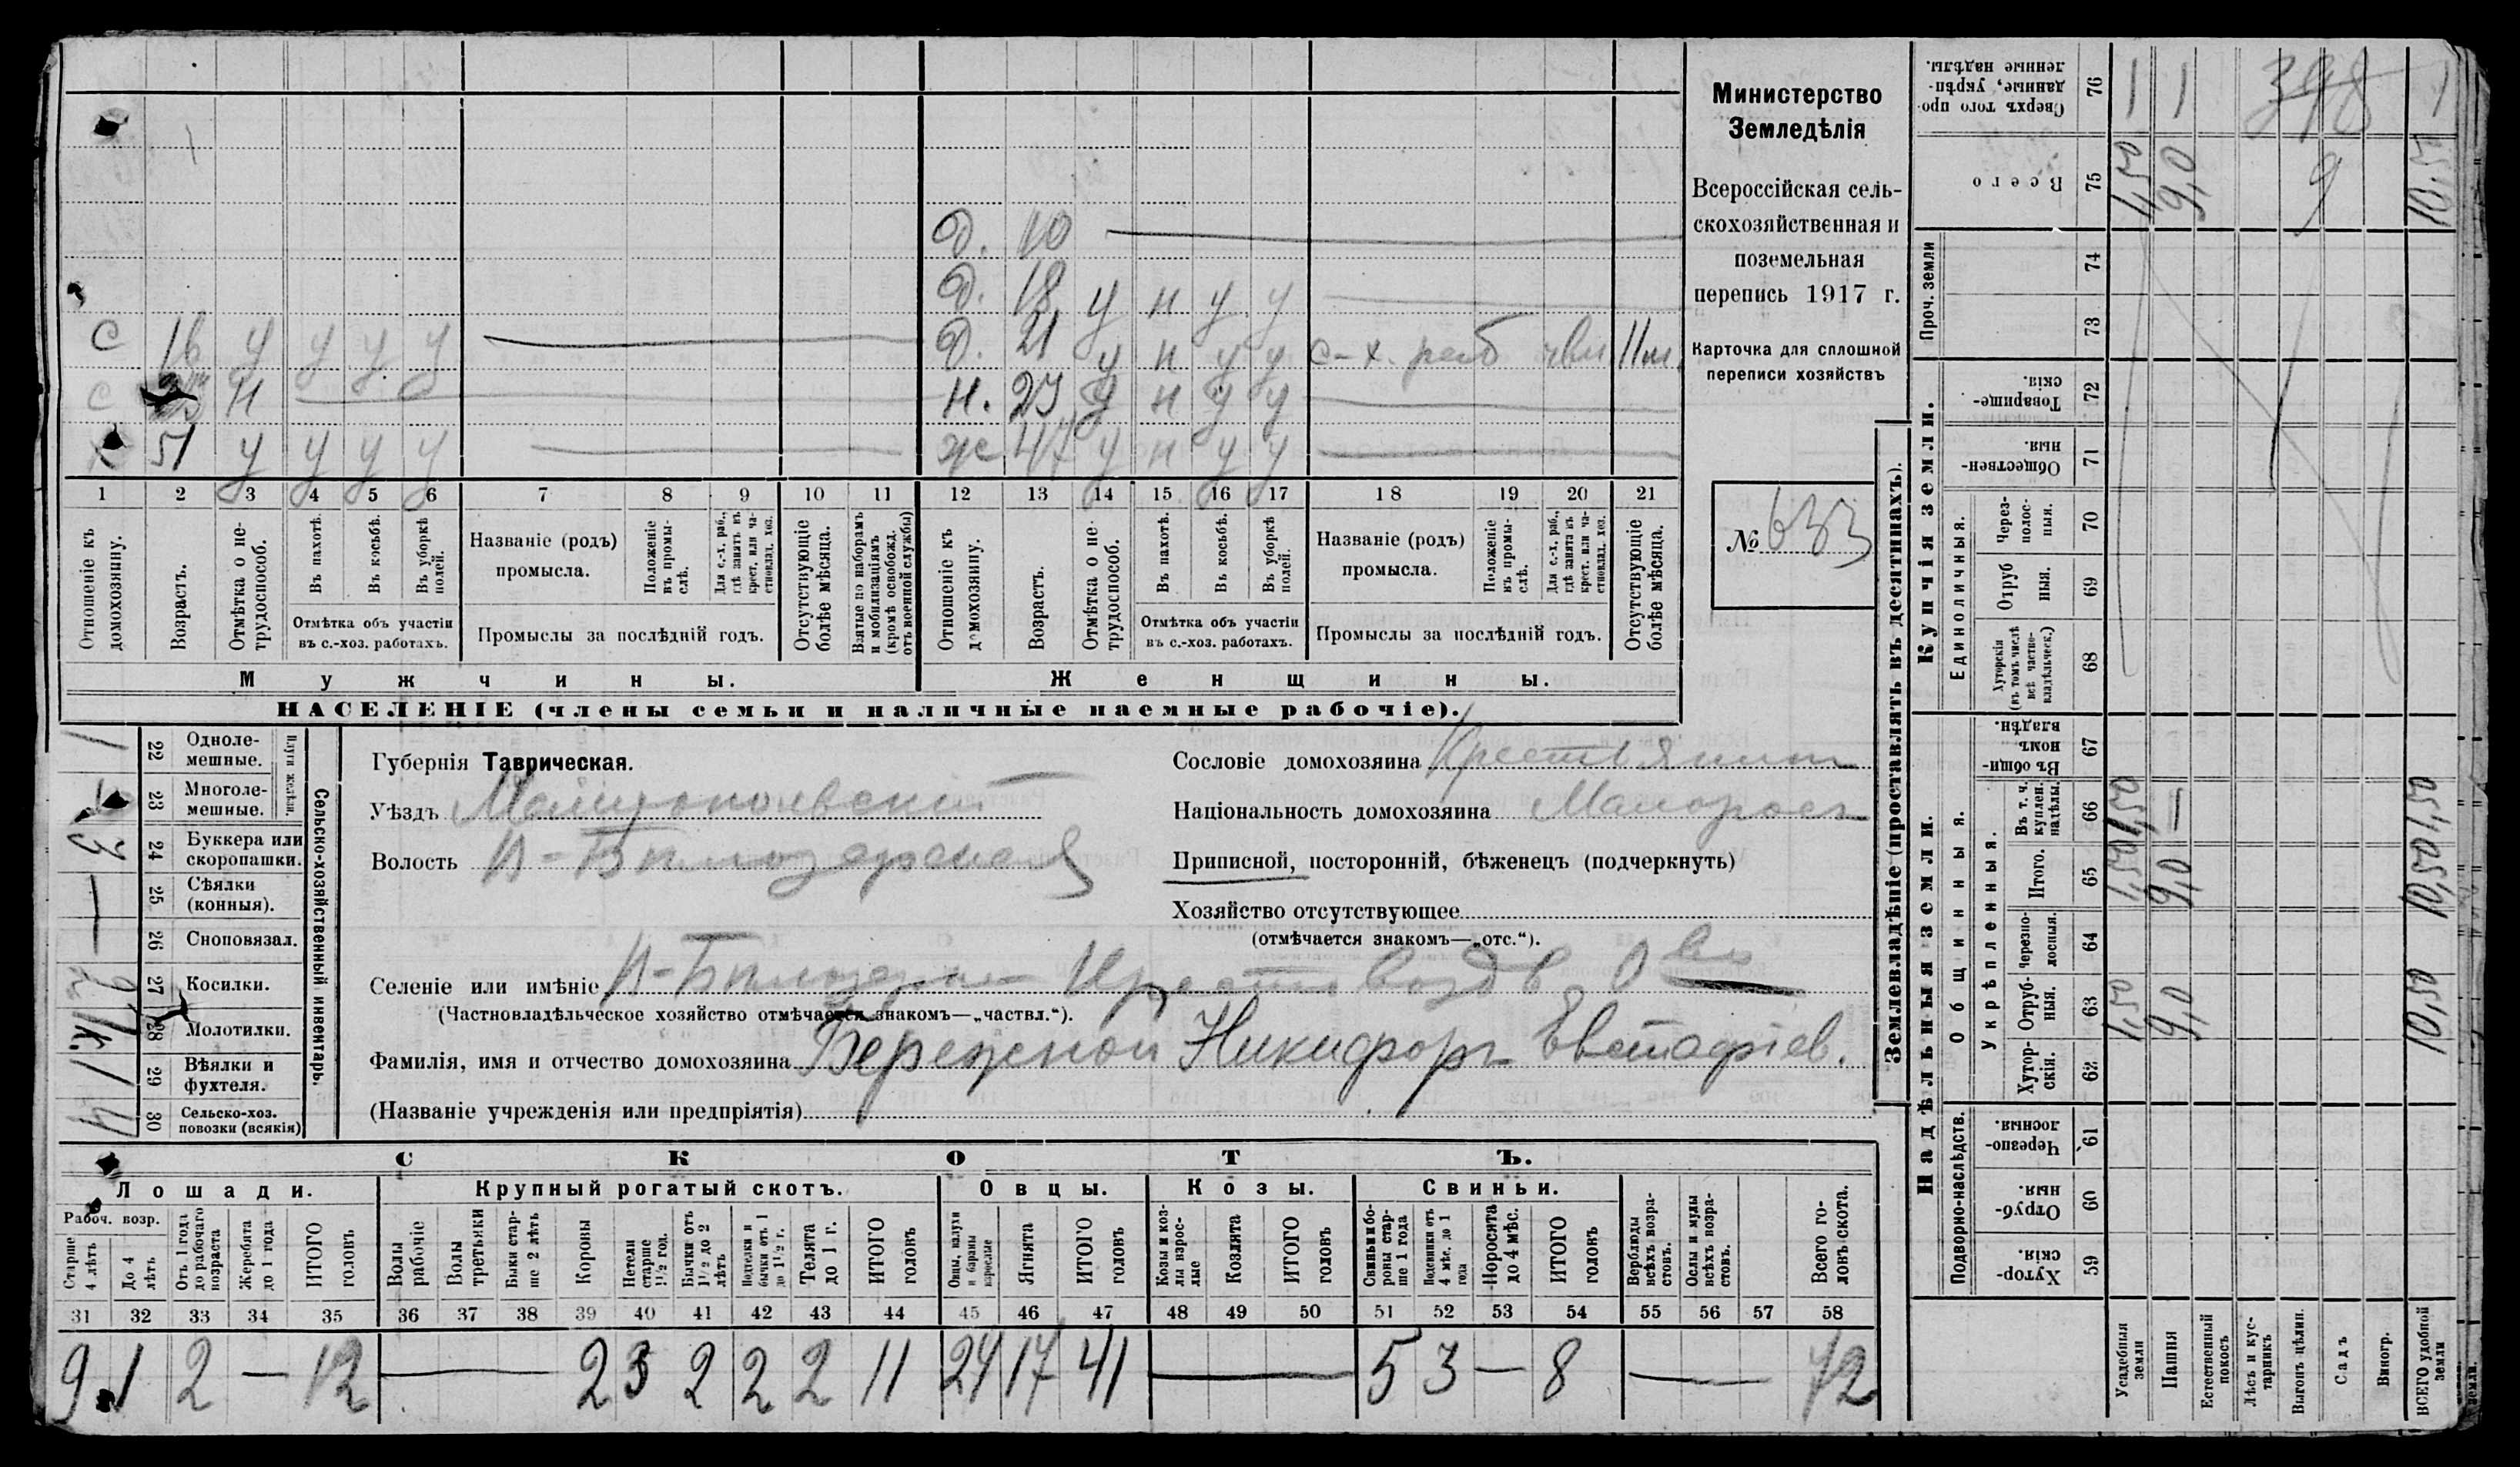 Министерство
Земледѣлія
Всероссійская сель-
скохозяйственная и
поземельная
перепись 1917 г.
Карточка для сплошной
переписи хозяйствъ
№ 633
д. 10
д. 18 у н у у
с 16 у у у у
д. 21 у н у у с-х. раб 11 м.
с Н
н. 23 у н у у
51 у у у у
ж 47 у н у у
1 2 3 4 5 6 7 8 9 10 11 12 13 14 15 16 17 18 19 20 21
Отношеніе къ домохозяину.
Возрастъ.
Отмѣтка о не-трудоспособ.
Въ пахотѣ.
Въ косьбѣ.
Въ уборкѣ полей.
Отмѣтка объ участіи
въ с.-хоз. работахъ.
Названіе (родъ)
промысла.
Положеніе въ промы-слѣ.
Для с.-х. раб., гдѣ занятъ въ крест. или ча-стновлад. хоз.
Промыслы за послѣдній годъ.
Отсутствующіе болѣе мѣсяца.
Взятые по наборамъ и мобилизаціямъ (кромѣ освобожд. отъ военной службы)
Отношеніе къ домохозяину.
Возрастъ.
Отмѣтка о не-трудоспособ.
Въ пахотѣ.
Въ косьбѣ.
Въ уборкѣ полей.
Отмѣтка объ участіи
въ с.-хоз. работахъ.
Названіе (родъ)
промысла.
Положеніе въ промы-слѣ.
Для с.-х. раб., гдѣ занята въ крест. или ча-стновлад. хоз.
Промыслы за послѣдній годъ.
Отсутствующіе болѣе мѣсяца.
Мужчины.
Женщины.
НАСЕЛЕНІЕ (члены семьи и наличные наемные рабочіе).
Сельско-хозяйственный инвентарь.
Плуги желѣзн.
1 22 Однолемешные.
23 Многолемешные.
3 24 Буккера или скоропашки.
— 25 Сѣялки (конныя).
— 26 Сноповязал.
27 Косилки.
1к. 28 Молотилки.
1 29 Вѣялки и фухтеля.
4 30 Сельско-хоз. повозки (всякія)
Губернія Таврическая.
Уѣздъ Мелитопольскій
Волость Н-Бѣлозерская
Сословіе домохозяина Крестьянинъ
Національность домохозяина Малороссъ
Приписной, посторонній, бѣженецъ (подчеркнуть)
Хозяйство отсутствующее
(отмѣчается знакомъ—„отс.“).
Селеніе или имѣніе Н-Бѣлозерка
(Частновладѣльческое хозяйство отмѣчается знакомъ—„частвл.“).
Фамилія, имя и отчество домохозяина Бережной Никифоръ Евстафіев.
(Названіе учрежденія или предпріятія)
СКОТЪ.
Лошади. Крупный рогатый скотъ. Овцы. Козы. Свиньи.
Рабоч. возр.
Старше 4 лѣтъ
До 4 лѣтъ
Отъ 1 года до рабочаго возраста
Жеребята до 1 года
ИТОГО головъ
Волы рабочіе
Волы третьяки
Быки стар-ше 2 лѣтъ
Коровы
Нетели старше 1½ год.
Бычки отъ 1½ до 2 лѣтъ
Подтелки и бычки отъ 1 до 1½ г.
Телята до 1 г.
ИТОГО головъ
Овцы, валухи и бараны взрослые
Ягнята
ИТОГО головъ
Козы и коз-лы взрос-лые
Козлята
ИТОГО головъ
Свиньи и бо-ровы стар-ше 1 года
Подсвинки отъ 4 мѣс. до 1 года
Поросята до 4 мѣс.
ИТОГО головъ
Верблюды всѣхъ возра-стовъ.
Ослы и мулы всѣхъ возра-стовъ.
Всего го-ловъ скота.
31 32 33 34 35 36 37 38 39 40 41 42 43 44 45 46 47 48 49 50 51 52 53 54 55 56 57 58
9 1 2 — 12 — 2 3 2 2 2 11 24 17 41 — 5 3 — 8 — 72
Землевладѣніе (проставлять въ десятинахъ).
Сверхъ того про-данные, укрѣп-ленные надѣлы. 76
Всего 75 1,50 9,0 9 10,50
Проч. земли 74 73
Купчія земли.
Товарище-скія. 72
Обществен-ныя. 71
Единоличныя.
Через-полос-ныя. 70
Отруб-ныя. 69
Хуторскія (въ томъ числѣ всѣ частно-владѣльческ.) 68
Надѣльныя земли.
Общинныя.
Въ общин-номъ владѣн. 67
Укрѣпленныя.
Въ т. ч. куплен. надѣлы. 66
Итого. 65 1,50 9,0 10,50
Черезпо-лосныя. 64
Отруб-ныя. 63 1,50 9,0 10,50
Хутор-скія. 62
Подворно-наслѣдств.
Черезпо-лосныя. 61
Отруб-ныя. 60
Хутор-скія. 59
Усадебная земля
Пашня
Естественный покосъ
Лѣсъ и кус-тарникъ
Выгонъ цѣлин.
Садъ
Виногр.
ВСЕГО удобной земли